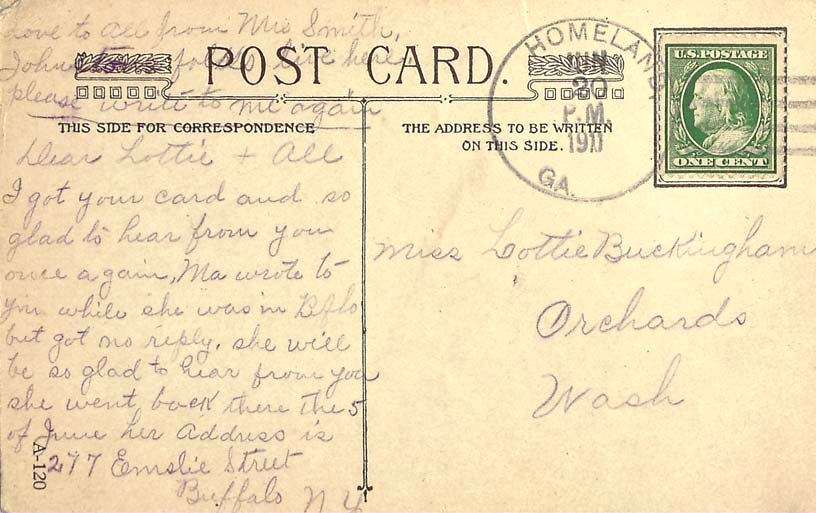 Love to all from Mrs Smith,
John's folks live here
please write to me again
POST CARD.
THIS SIDE FOR CORRESPONDENCE
THE ADDRESS TO BE WRITTEN
ON THIS SIDE.
HOMELAND,
JUN
20
P.M.
191
GA.
U.S. POSTAGE
ONE CENT
Dear Lottie + All
I got your card and so
glad to hear from you
once again, Ma wrote to
you while she was in Bflo
but got no reply. she will
be so glad to hear from you
she went back there the 5
of June her Address is
277 Emslie Street
Buffalo N Y
A-120
Miss Lottie Buckingham
Orchards
Wash